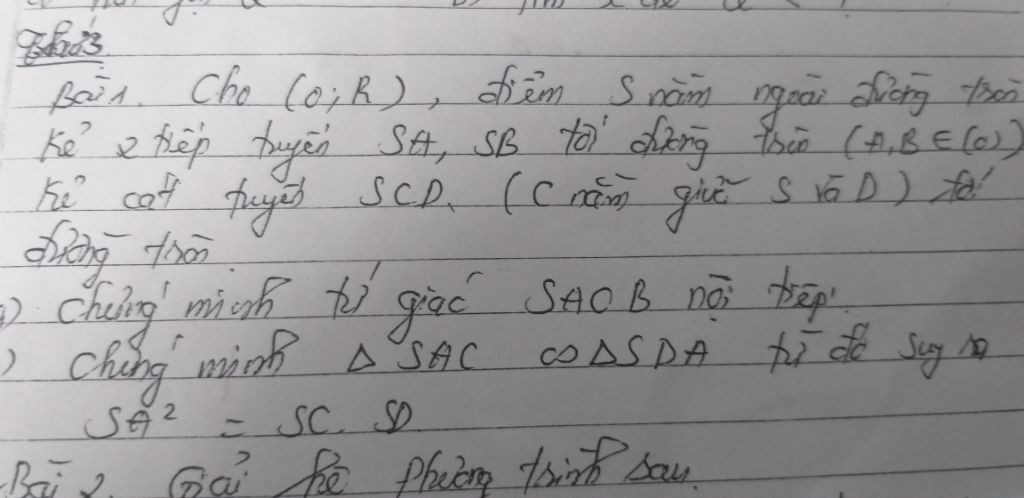 Bài 1. Cho (O; R), điểm S nằm ngoài đường tròn
Kẻ 2 tiếp tuyến SA, SB tới đường tròn (A, B ∈ (O))
Kẻ cát tuyến SCD. (C nằm giữa S và D) tới
đường tròn.
) Chứng minh tứ giác SAOB nội tiếp.
) Chứng minh Δ SAC ∽ Δ SDA từ đó suy ra
SA² = SC. SD
Bài 2. Giải hệ phương trình sau.